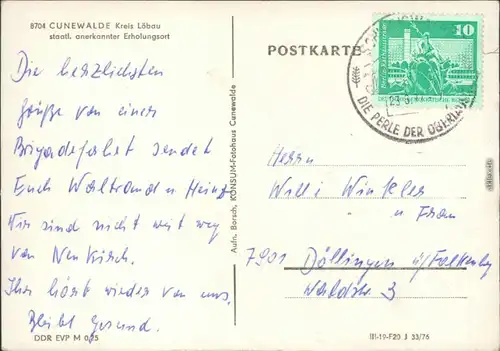 8704 CUNEWALDE Kreis Löbau
staatl. anerkannter Erholungsort
Die herzlichsten
Grüße von einer
Brigadefahrt sendet
Euch Waltraud u Heinz
Wir sind nicht weit weg
von Neukirch.
Ihr hört wieder von uns.
Bleibt Gesund.
DDR EVP M 0,25
Aufn. Borsch, KONSUM-Fotohaus Cunewalde
POSTKARTE
10
DIE PERLE DER OBERLAUSITZ
Herrn
Willi Winkler
u Frau
7901 Döllingen ü/Falkenbg
Waldstr. 3
III-19-F20 J 33/76